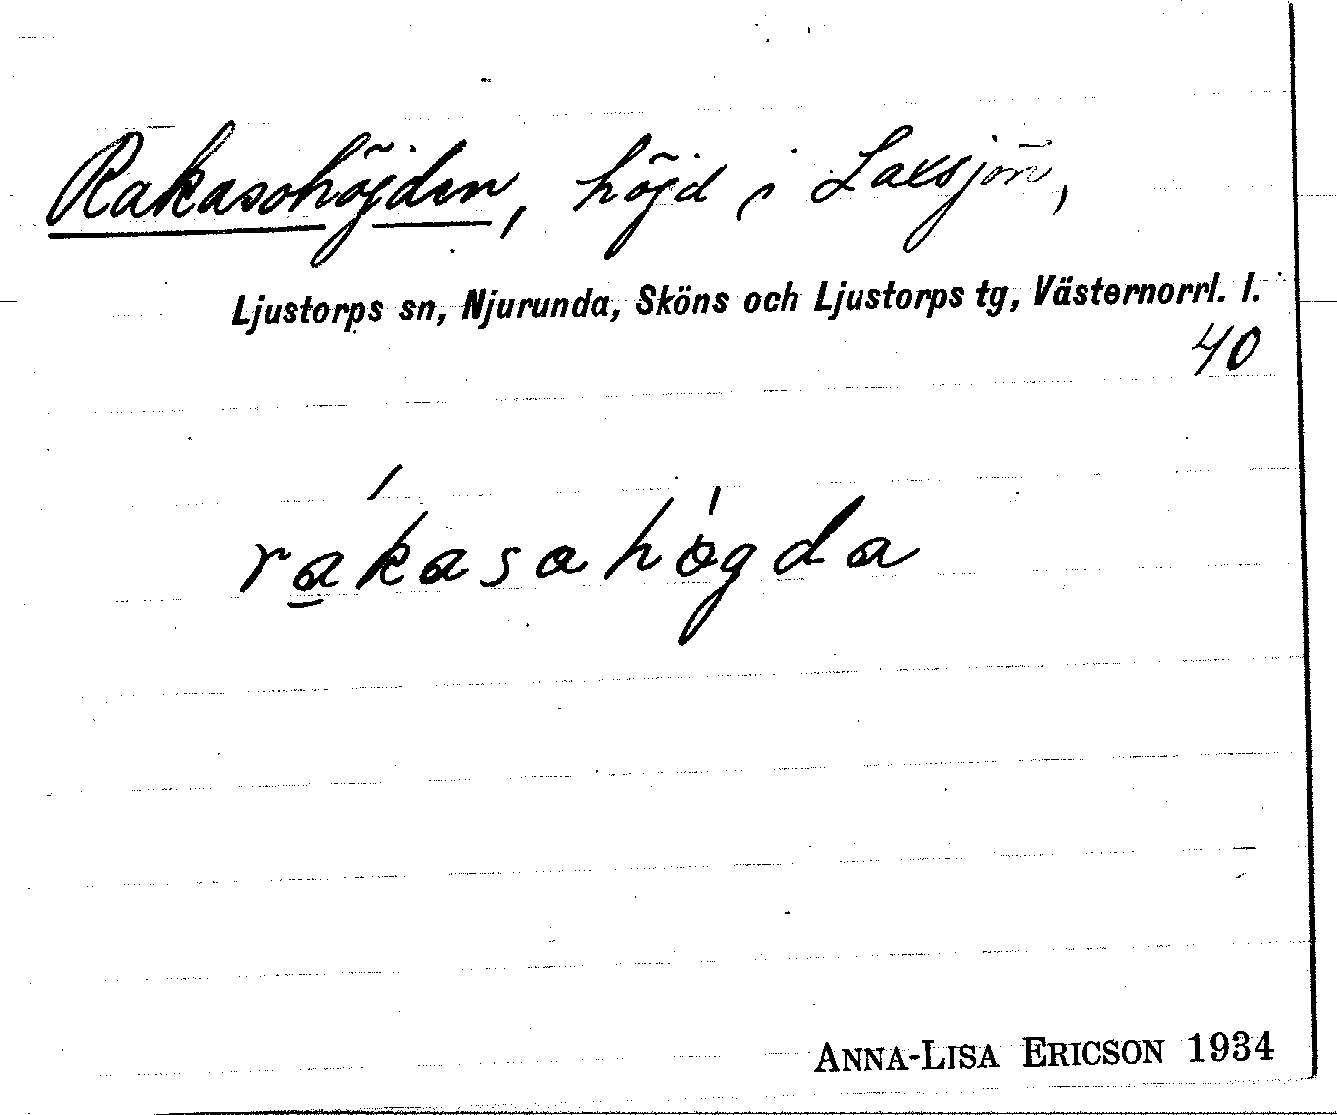 Rakasohöjden, höjd i Laxsjön,
Ljustorps sn, Njurunda, Sköns och Ljustorps tg, Västernorrl. l.
40
rákasahǿgda
ANNA-LISA ERICSON 1934